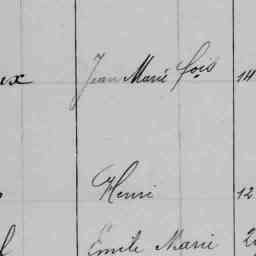 ux Jean Marie fois 14
Henri 12
l Emile Marie 2